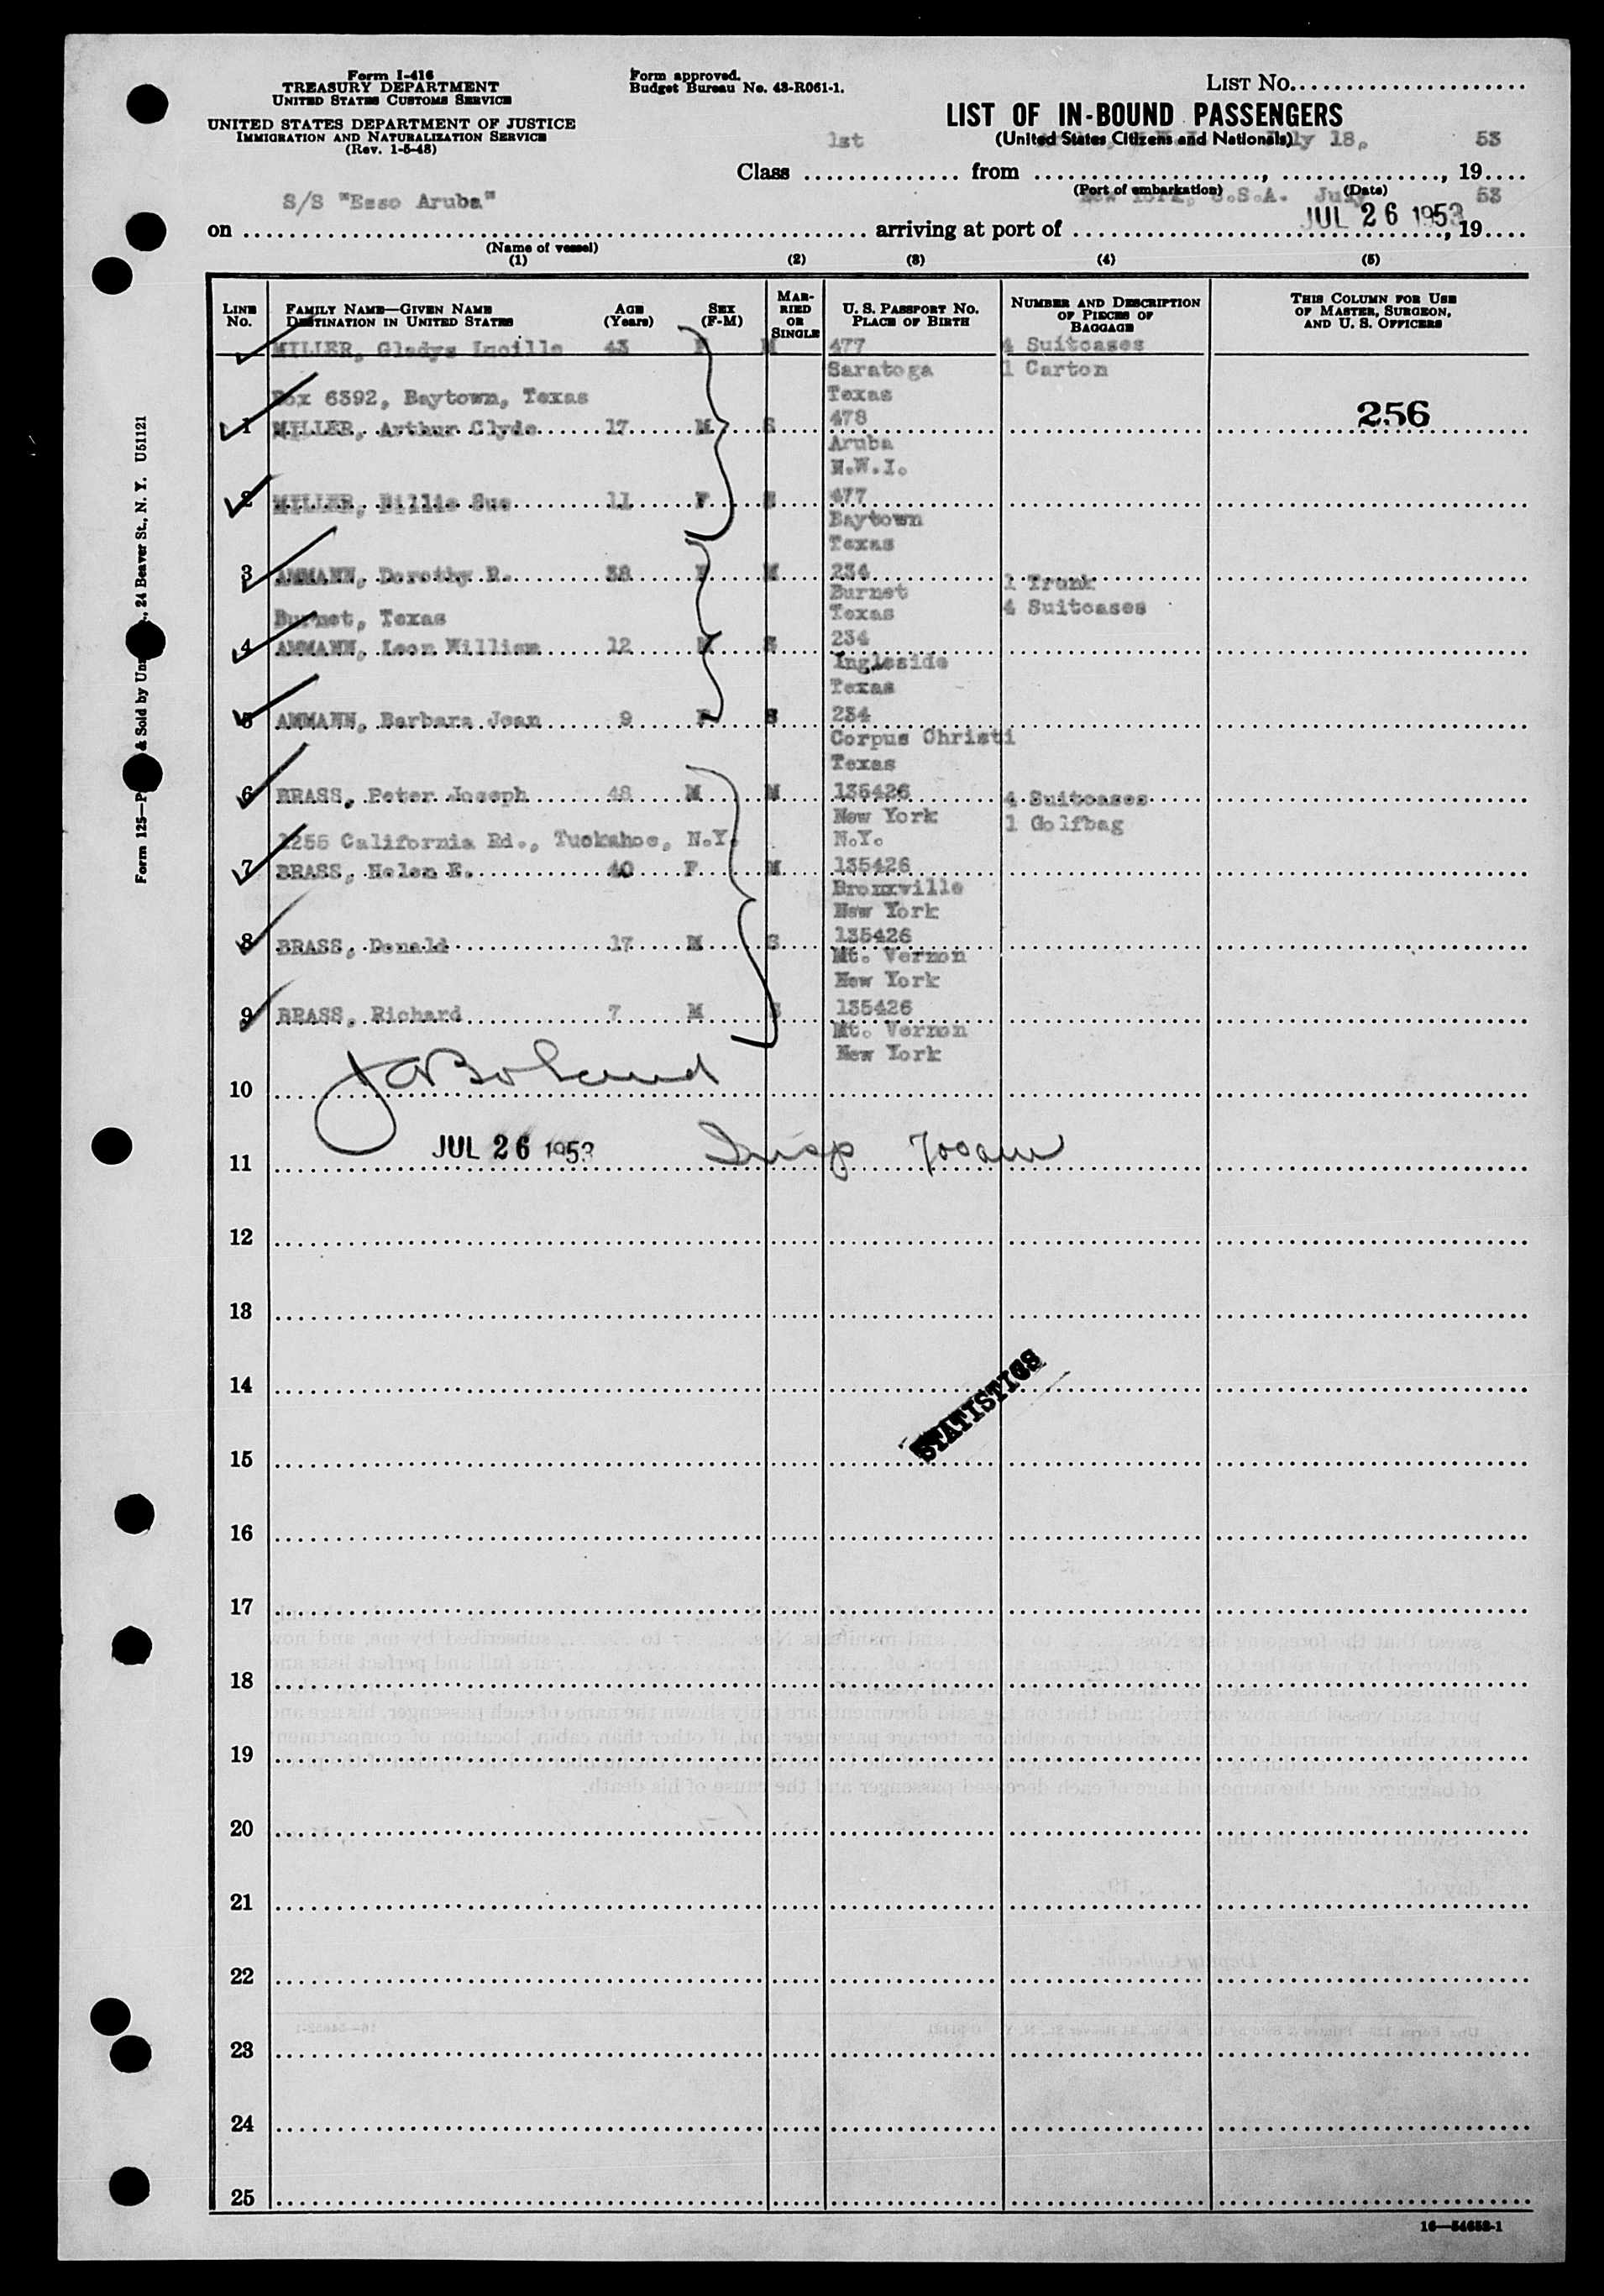 Form I-416
TREASURY DEPARTMENT
UNITED STATES CUSTOMS SERVICE
UNITED STATES DEPARTMENT OF JUSTICE
IMMIGRATION AND NATURALIZATION SERVICE
(Rev. 1-5-48)
Form approved.
Budget Bureau No. 43-R061-1.
LIST NO.
LIST OF IN-BOUND PASSENGERS
(United States Citizens and Nationals)
Class 1st from July 18, 1953
(Port of embarkation) (Date)
on S/S "Esso Aruba" arriving at port of New York, U.S.A. July JUL 26 1953, 1953
(Name of vessel)
(1) (2) (3) (4) (5)
LINE No. FAMILY NAME—GIVEN NAME DESTINATION IN UNITED STATES AGE (Years) SEX (F-M) MARRIED OR SINGLE U. S. PASSPORT NO. PLACE OF BIRTH NUMBER AND DESCRIPTION OF PIECES OF BAGGAGE THIS COLUMN FOR USE OF MASTER, SURGEON, AND U. S. OFFICERS
MILLER, Gladys Lucille 43 F M 477 4 Suitcases
Saratoga 1 Carton
Box 6392, Baytown, Texas Texas
1 MILLER, Arthur Clyde 17 M S 478 256
Aruba
N.W.I.
2 MILLER, Billie Sue 11 F S 477
Baytown
Texas
3 AMMANN, Dorothy R. 38 F M 234 1 Trunk
Burnet 4 Suitcases
Burnet, Texas Texas
4 AMMANN, Leon William 12 M S 234
Ingleside
Texas
5 AMMANN, Barbara Jean 9 F S 234
Corpus Christi
Texas
6 BRASS, Peter Joseph 48 M M 135426 4 Suitcases
New York 1 Golfbag
1255 California Rd., Tuckahoe, N.Y. N.Y.
7 BRASS, Helen E. 40 F M 135426
Bronxville
New York
8 BRASS, Donald 17 M S 135426
Mt. Vernon
New York
9 BRASS, Richard 7 M S 135426
Mt. Vernon
New York
10 J A Boland
11 JUL 26 1953 Insp 700am
12
13
14
STATISTICS
15
16
17
18
19
20
21
22
23
24
25
16—54652-1
Form 125— & Sold by Unz , 24 Beaver St., N. Y. U51121